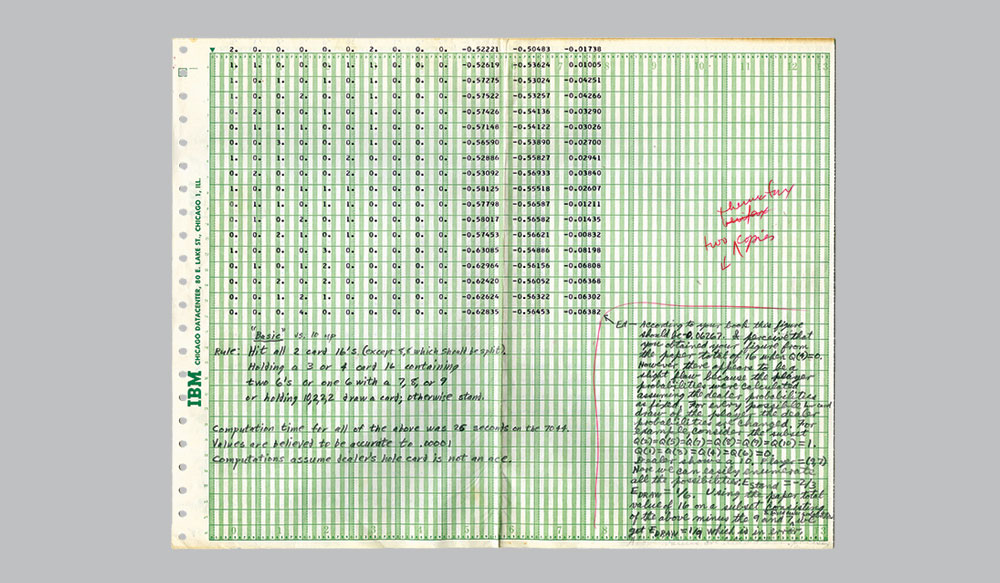 2. 0. 0. 0. 0. 0. 2. 0. 0. 0. -0.52221 -0.50483 -0.01738
1. 1. 0. 0. 0. 1. 1. 0. 0. 0. -0.52619 -0.53624 0.01005
1. 0. 1. 0. 1. 0. 1. 0. 0. 0. -0.57275 -0.53024 -0.04251
1. 0. 0. 2. 0. 0. 1. 0. 0. 0. -0.57522 -0.53257 -0.04266
0. 2. 0. 0. 1. 0. 1. 0. 0. 0. -0.57426 -0.54136 -0.03290
0. 1. 1. 1. 0. 0. 1. 0. 0. 0. -0.57148 -0.54122 -0.03026
0. 0. 3. 0. 0. 0. 1. 0. 0. 0. -0.56590 -0.53890 -0.02700
1. 0. 1. 0. 0. 2. 0. 0. 0. 0. -0.52886 -0.55827 0.02941
0. 2. 0. 0. 0. 2. 0. 0. 0. 0. -0.53092 -0.56933 0.03840
1. 0. 0. 1. 1. 1. 0. 0. 0. 0. -0.58125 -0.55518 -0.02607
0. 1. 1. 0. 1. 1. 0. 0. 0. 0. -0.57798 -0.56587 -0.01211
0. 1. 0. 2. 0. 1. 0. 0. 0. 0. -0.58017 -0.56582 -0.01435
0. 0. 2. 1. 0. 1. 0. 0. 0. 0. -0.57453 -0.56621 -0.00832
1. 0. 0. 0. 3. 0. 0. 0. 0. 0. -0.63085 -0.54886 -0.08198
0. 1. 0. 1. 2. 0. 0. 0. 0. 0. -0.62964 -0.56156 -0.06808
0. 0. 2. 0. 2. 0. 0. 0. 0. 0. -0.62420 -0.56052 -0.06368
0. 0. 1. 2. 1. 0. 0. 0. 0. 0. -0.62624 -0.56322 -0.06302
0. 0. 0. 4. 0. 0. 0. 0. 0. 0. -0.62835 -0.56453 -0.06382
"Basic" vs. 10 up
Rule: Hit all 2 card 16's (except 8,8 which should be split).
Holding a 3 or 4 card 16 containing
two 6's or one 6 with a 7, 8, or 9
or holding 10,2,2,2 draw a card; otherwise stand.
Computation time for all of the above was 26 seconds on the 7044.
Values are believed to be accurate to .00001
Computations assume dealer's hole card is not an ace.
IBM CHICAGO DATACENTER, 80 E. LAKE ST., CHICAGO 1, ILL
two copies
Ed - According to your book this figure
should be -0.06267. I perceive that
you obtained your figure from
the paper total of 16 when Q(4)=0.
However there appears to be a
slight flaw because the player
probabilities were calculated
assuming the dealer probabilities
as fixed. For every possible card
draw of the player the dealer
probabilities are changed. For
example, consider the subset
Q(2)=Q(5)=Q(7)=Q(8)=Q(9)=Q(10)=1.
Q(1)=Q(3)=Q(4)=Q(6)=0.
Dealer shows a 10. Player=(9,7)
Now we can easily enumerate
all the possibilities. E stand = -2/3
E DRAW = 1/6. Using the paper total
value of 16 on a subset consisting
of the above minus the 9 and 7, we
get E DRAW = 1/9 which is in error.
0 1 2 3 4 5 6 7 8 9 10 11 12 13